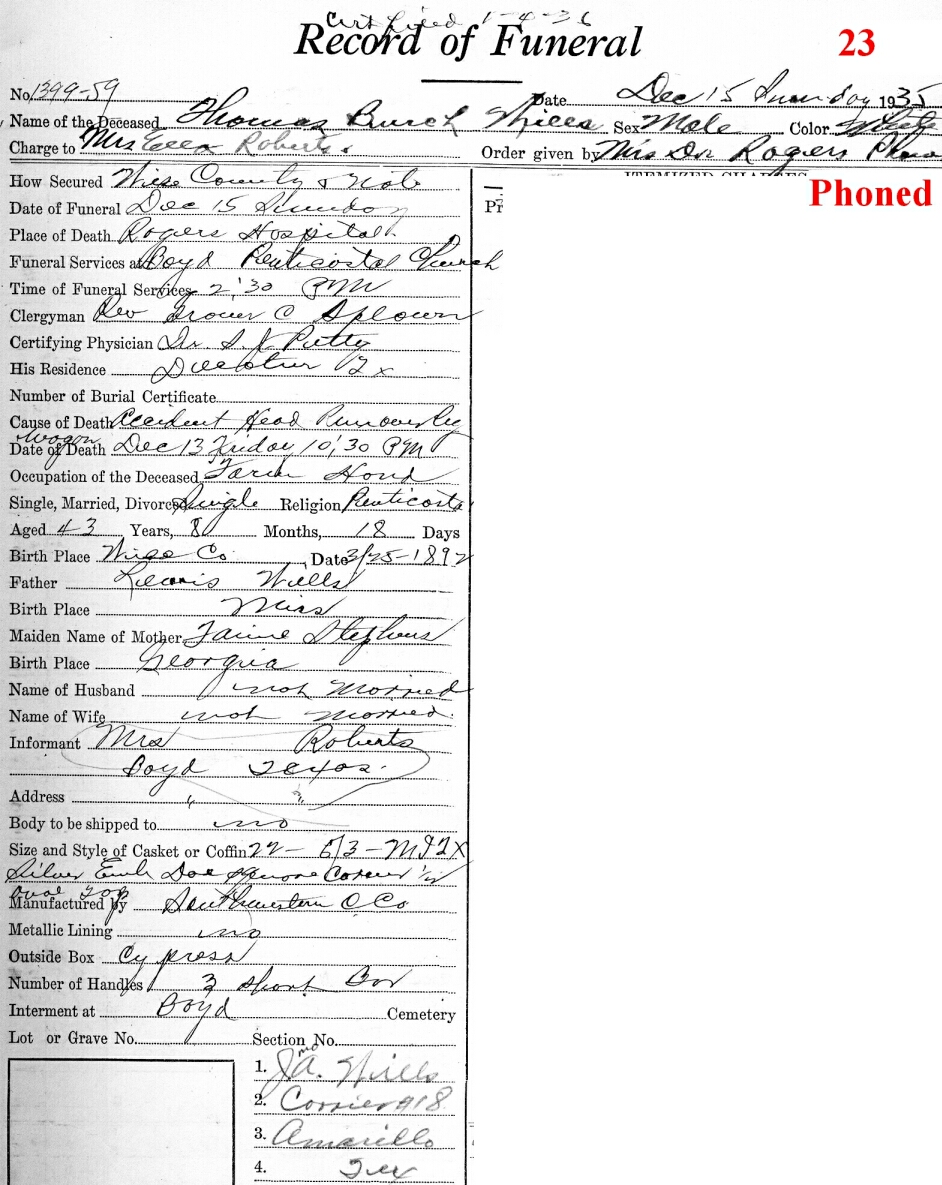 Certified 1-4-36
Record of Funeral 23
No. 1399-59 Date Dec 15 Sunday 1935
Name of the Deceased Thomas Burch Wills Sex Male Color White
Charge to Mrs Ella Roberts. Order given by Mrs Dr Rogers Phone
How Secured Wise County & Note
ITEMIZED CHARGES
Phoned
Date of Funeral Dec 15 Sunday
Pr
Place of Death Rogers Hospital
Funeral Services at Boyd Penticostal Church
Time of Funeral Services 2:30 PM
Clergyman Rev Grover C
Certifying Physician Dr. S. J. Petty
His Residence Decatur Tx
Number of Burial Certificate
Cause of Death Accident Head Run over by
wagon
Date of Death Dec 13 Friday 10:30 PM
Occupation of the Deceased Farm Hand
Single, Married, Divorced Single Religion Penticosta
Aged 43 Years, 8 Months, 18 Days
Birth Place Wise Co. , Date 3/25-1892
Father Lewis Wills
Birth Place Miss
Maiden Name of Mother Stephens
Birth Place Georgia
Name of Husband not Married
Name of Wife not Married.
Informant Mrs Roberts
Boyd Texas.
Address " "
Body to be shipped to no
Size and Style of Casket or Coffin 22 - 6/3 -
Silver Emb Doe Square Corner
oval top
Manufactured by Southwestern C Co
Metallic Lining no
Outside Box Cypress
Number of Handles 3 Short Bar
Interment at Boyd Cemetery
Lot or Grave No. Section No.
1. J.A. Wills
2. Carrier #18
3. Amarillo
4. Tex